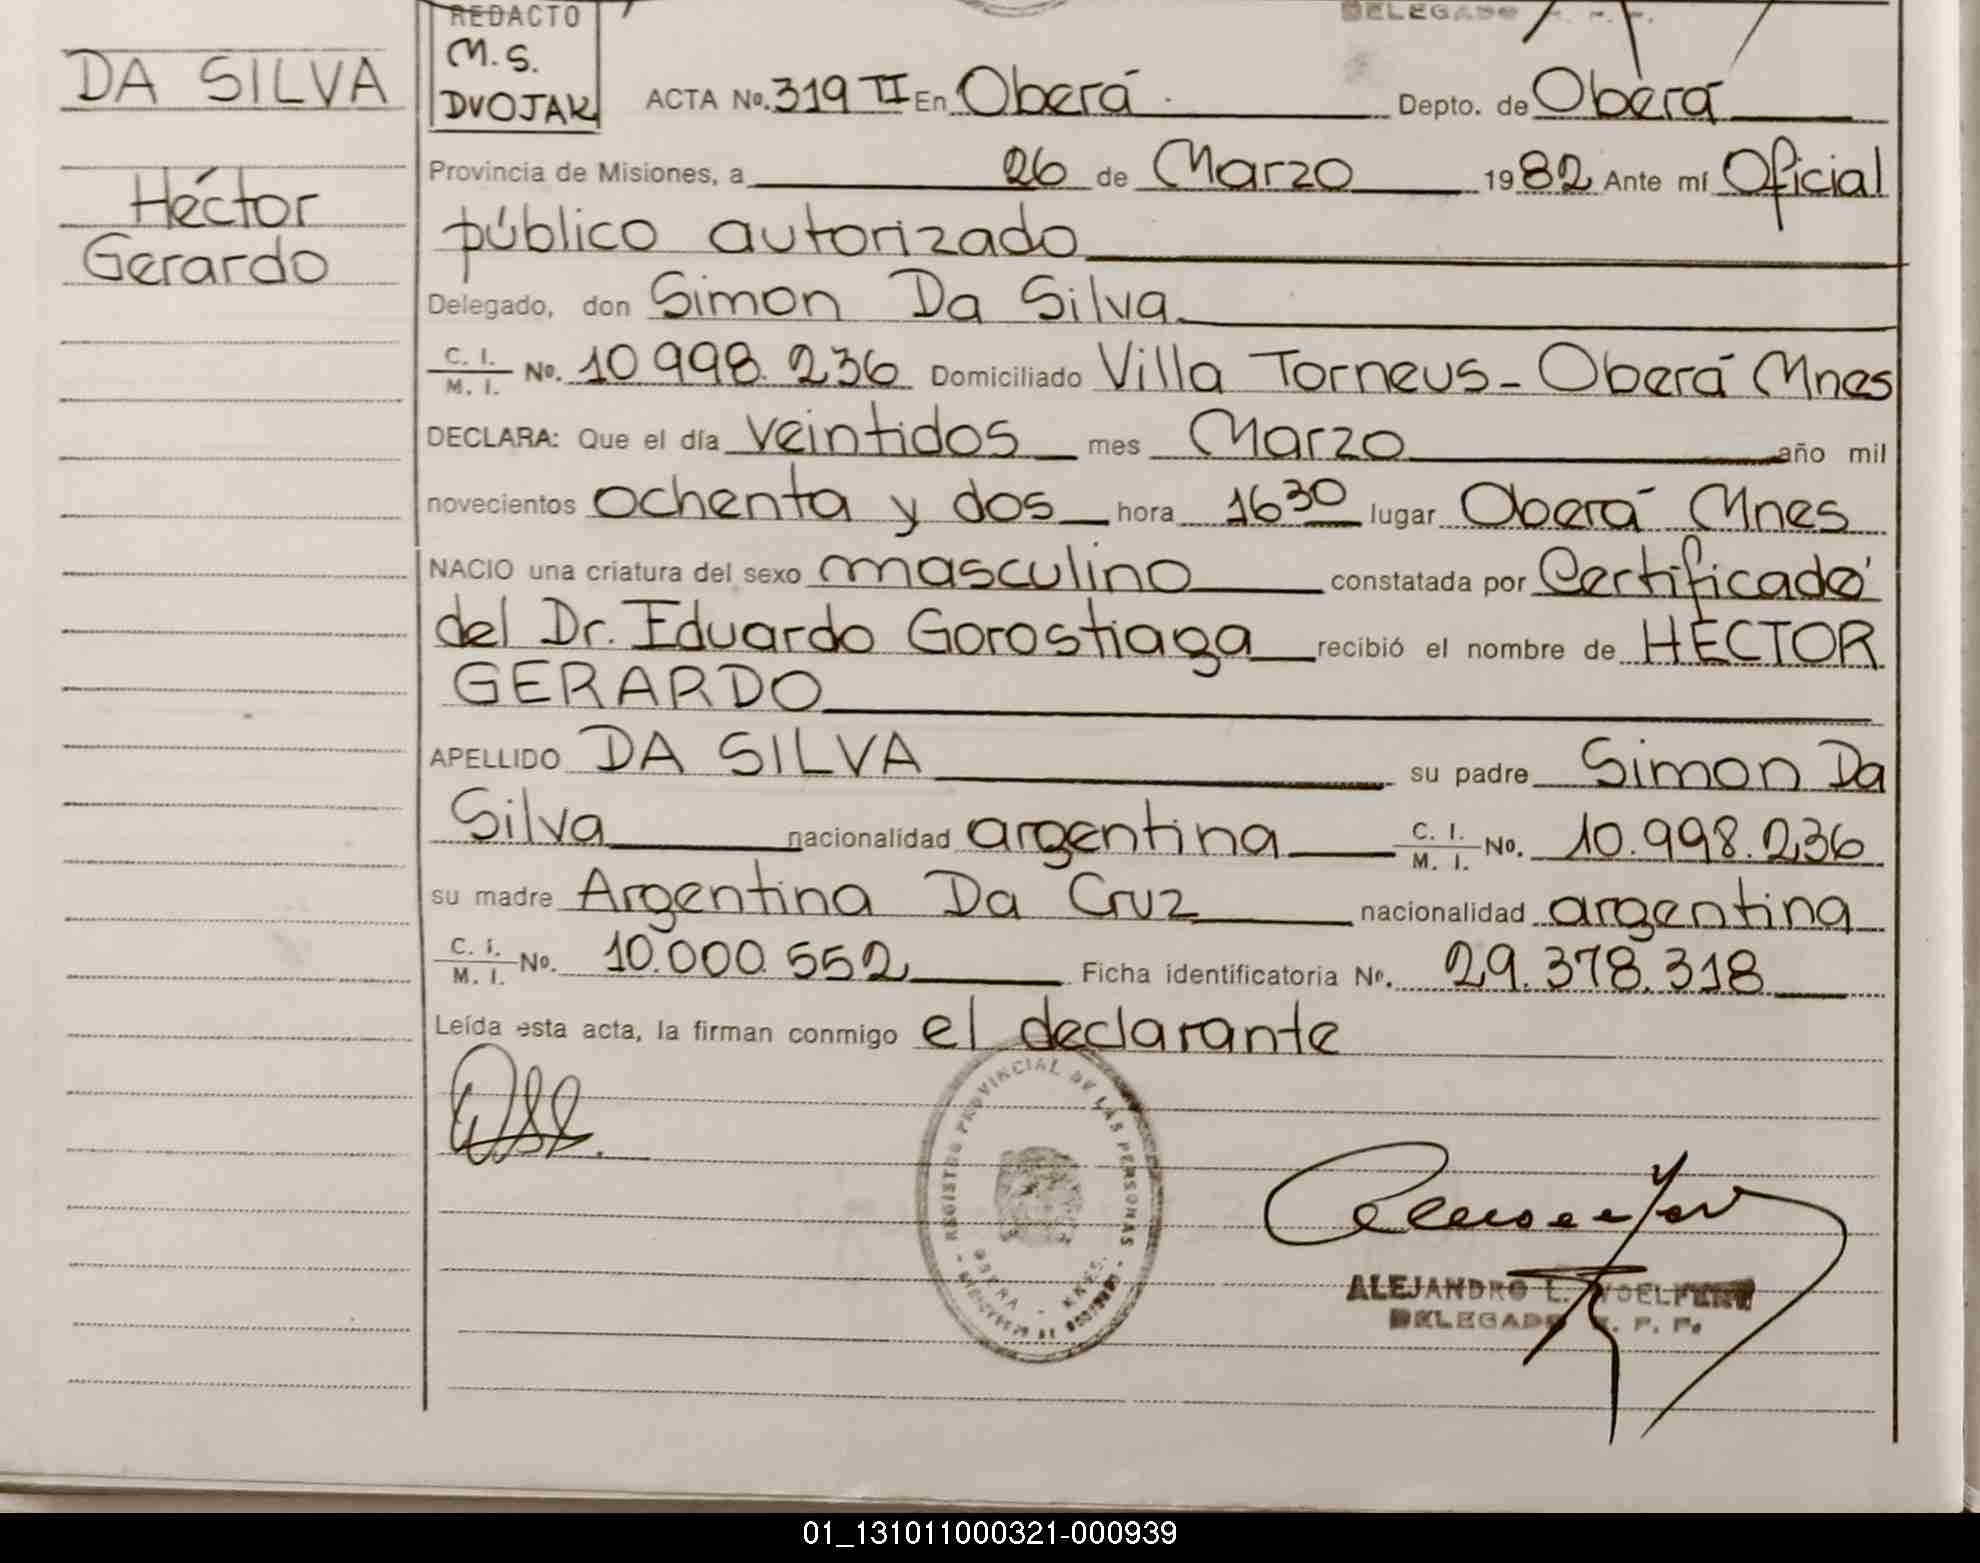 REDACTO
M.S.
DVOJAK
DELEGADO
DA SILVA
Héctor
Gerardo
ACTA No. 319 II En Oberá Depto. de Oberá
Provincia de Misiones, a 26 de Marzo 1982 Ante mí Oficial
público autorizado
Delegado, don Simon Da Silva
C. I. / M. I. No. 10 998. 236 Domiciliado Villa Torneus - Oberá Mnes
DECLARA: Que el día veintidos mes Marzo año mil
novecientos ochenta y dos hora 16 30 lugar Oberá Mnes
NACIO una criatura del sexo masculino constatada por Certificado
del Dr. Eduardo Gorostiaga recibió el nombre de HECTOR
GERARDO
APELLIDO DA SILVA su padre Simon Da
Silva nacionalidad argentina C. I. / M. I. No. 10.998.236
su madre Argentina Da Cruz nacionalidad argentina
C. I. / M. I. No. 10.000.552 Ficha identificatoria No. 29.378.318
Leída esta acta, la firman conmigo el declarante
- REGISTRO PROVINCIAL DE LAS PERSONAS -
OBERA - MNES.
ALEJANDRO L.
DELEGADO
01_131011000321-000939